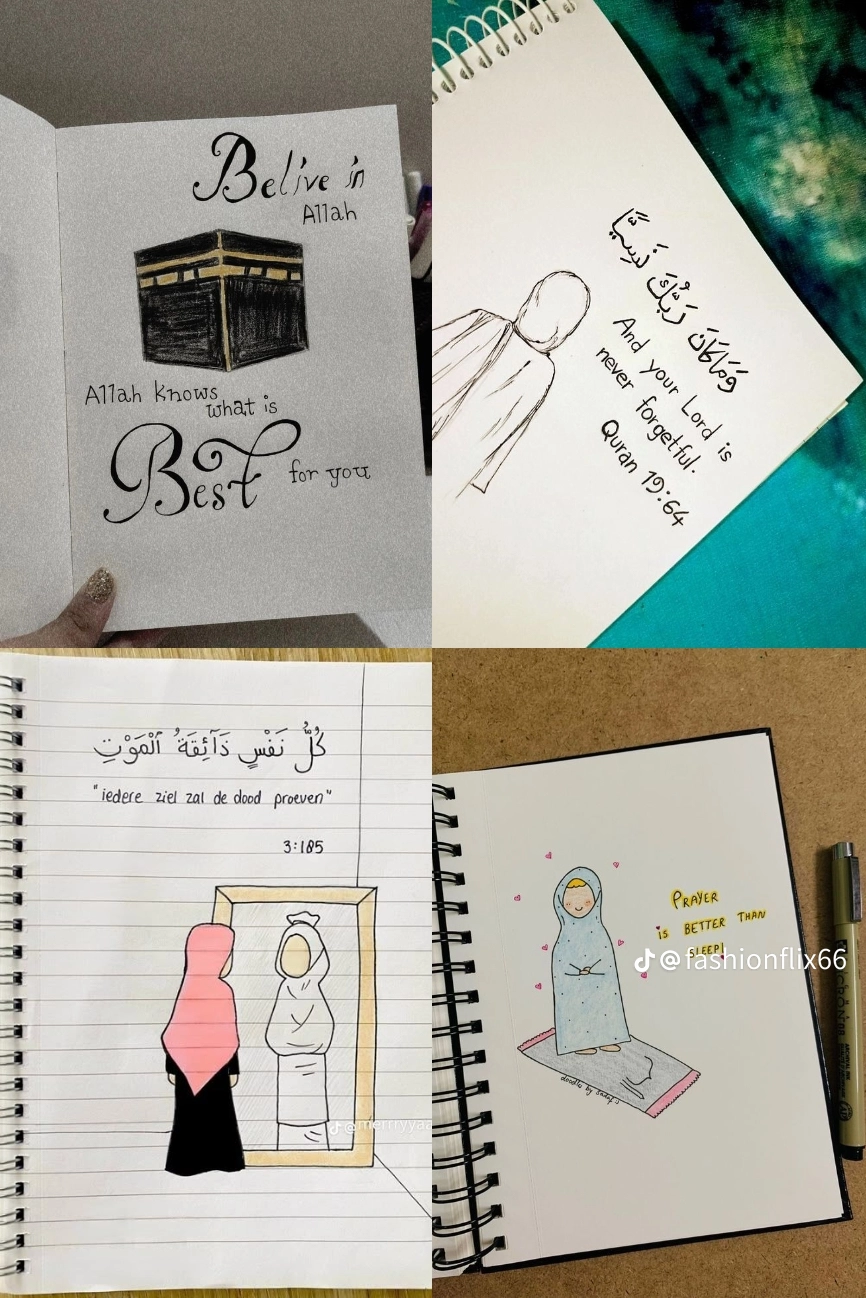 Belive in
Allah
Allah knows
what is
Best for you
وَمَا كَانَ رَبُّكَ نَسِيًّا
And your Lord is
never forgetful.
Quran 19:64
كُلُّ نَفْسٍ ذَآئِقَةُ ٱلْمَوْتِ
"iedere ziel zal de dood proeven"
3:185
@merrryyaa
PRAYER
is BETTER THAN
SLEEP!
@fashionflix66
doodles by Sadaf's